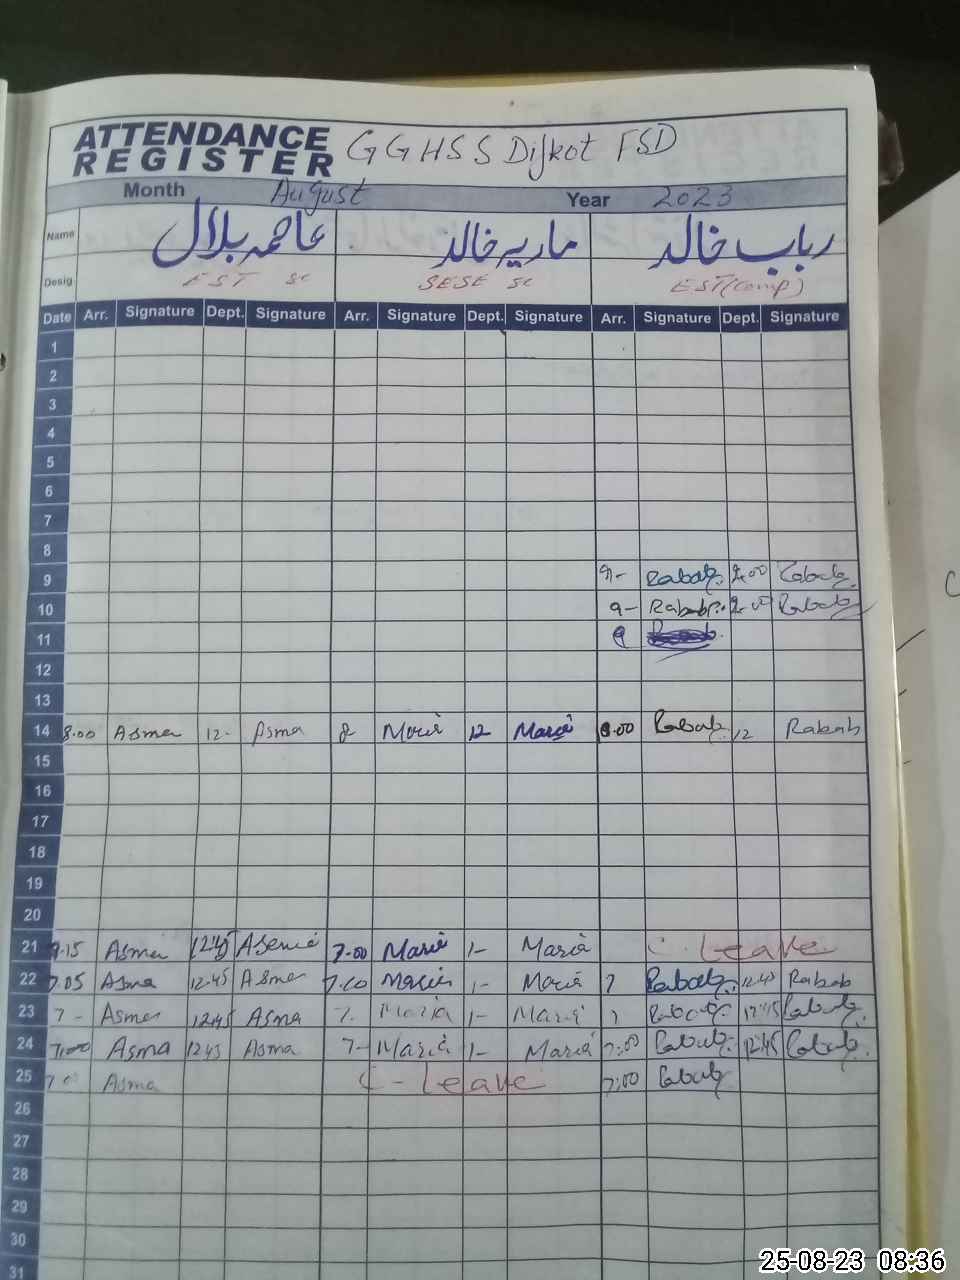 ATTENDANCE
REGISTER GGHSS Dijkot FSD
Month August Year 2023
Name عاصمہ بلال ماریہ خالد رباب خالد
Desig. EST SC SESE SC EST(Comp)
Date Arr. Signature Dept. Signature Arr. Signature Dept. Signature Arr. Signature Dept. Signature
1
2
3
4
5
6
7
8
9 9- Rabab 2.00 Rabab
10 9- Rabab 2.00 Rabab
11 9
12
13
14 8.00 Asma 12- Asma 8 Maria 12 Maria 8.00 Rabab 12 Rabab
15
16
17
18
19
20
21 Asma 12:45 7.00 Maria 1- Maria C Leave
22 7.05 Asma 12.45 Asma 7.00 Maria 1- Maria 7 Rabab 12.45 Rabab
23 7- Asma 12:45 Asma 7. Maria 1- Maria 7 Rabab 12:45 Rabab
24 7:00 Asma 12:45 Asma 7- Maria 1- Maria 7:00 Rabab 12:45 Rabab
25 7.0 Asma C-Leave 7:00 Rabab
26
27
28
29
30
31
25-08-23 08:36